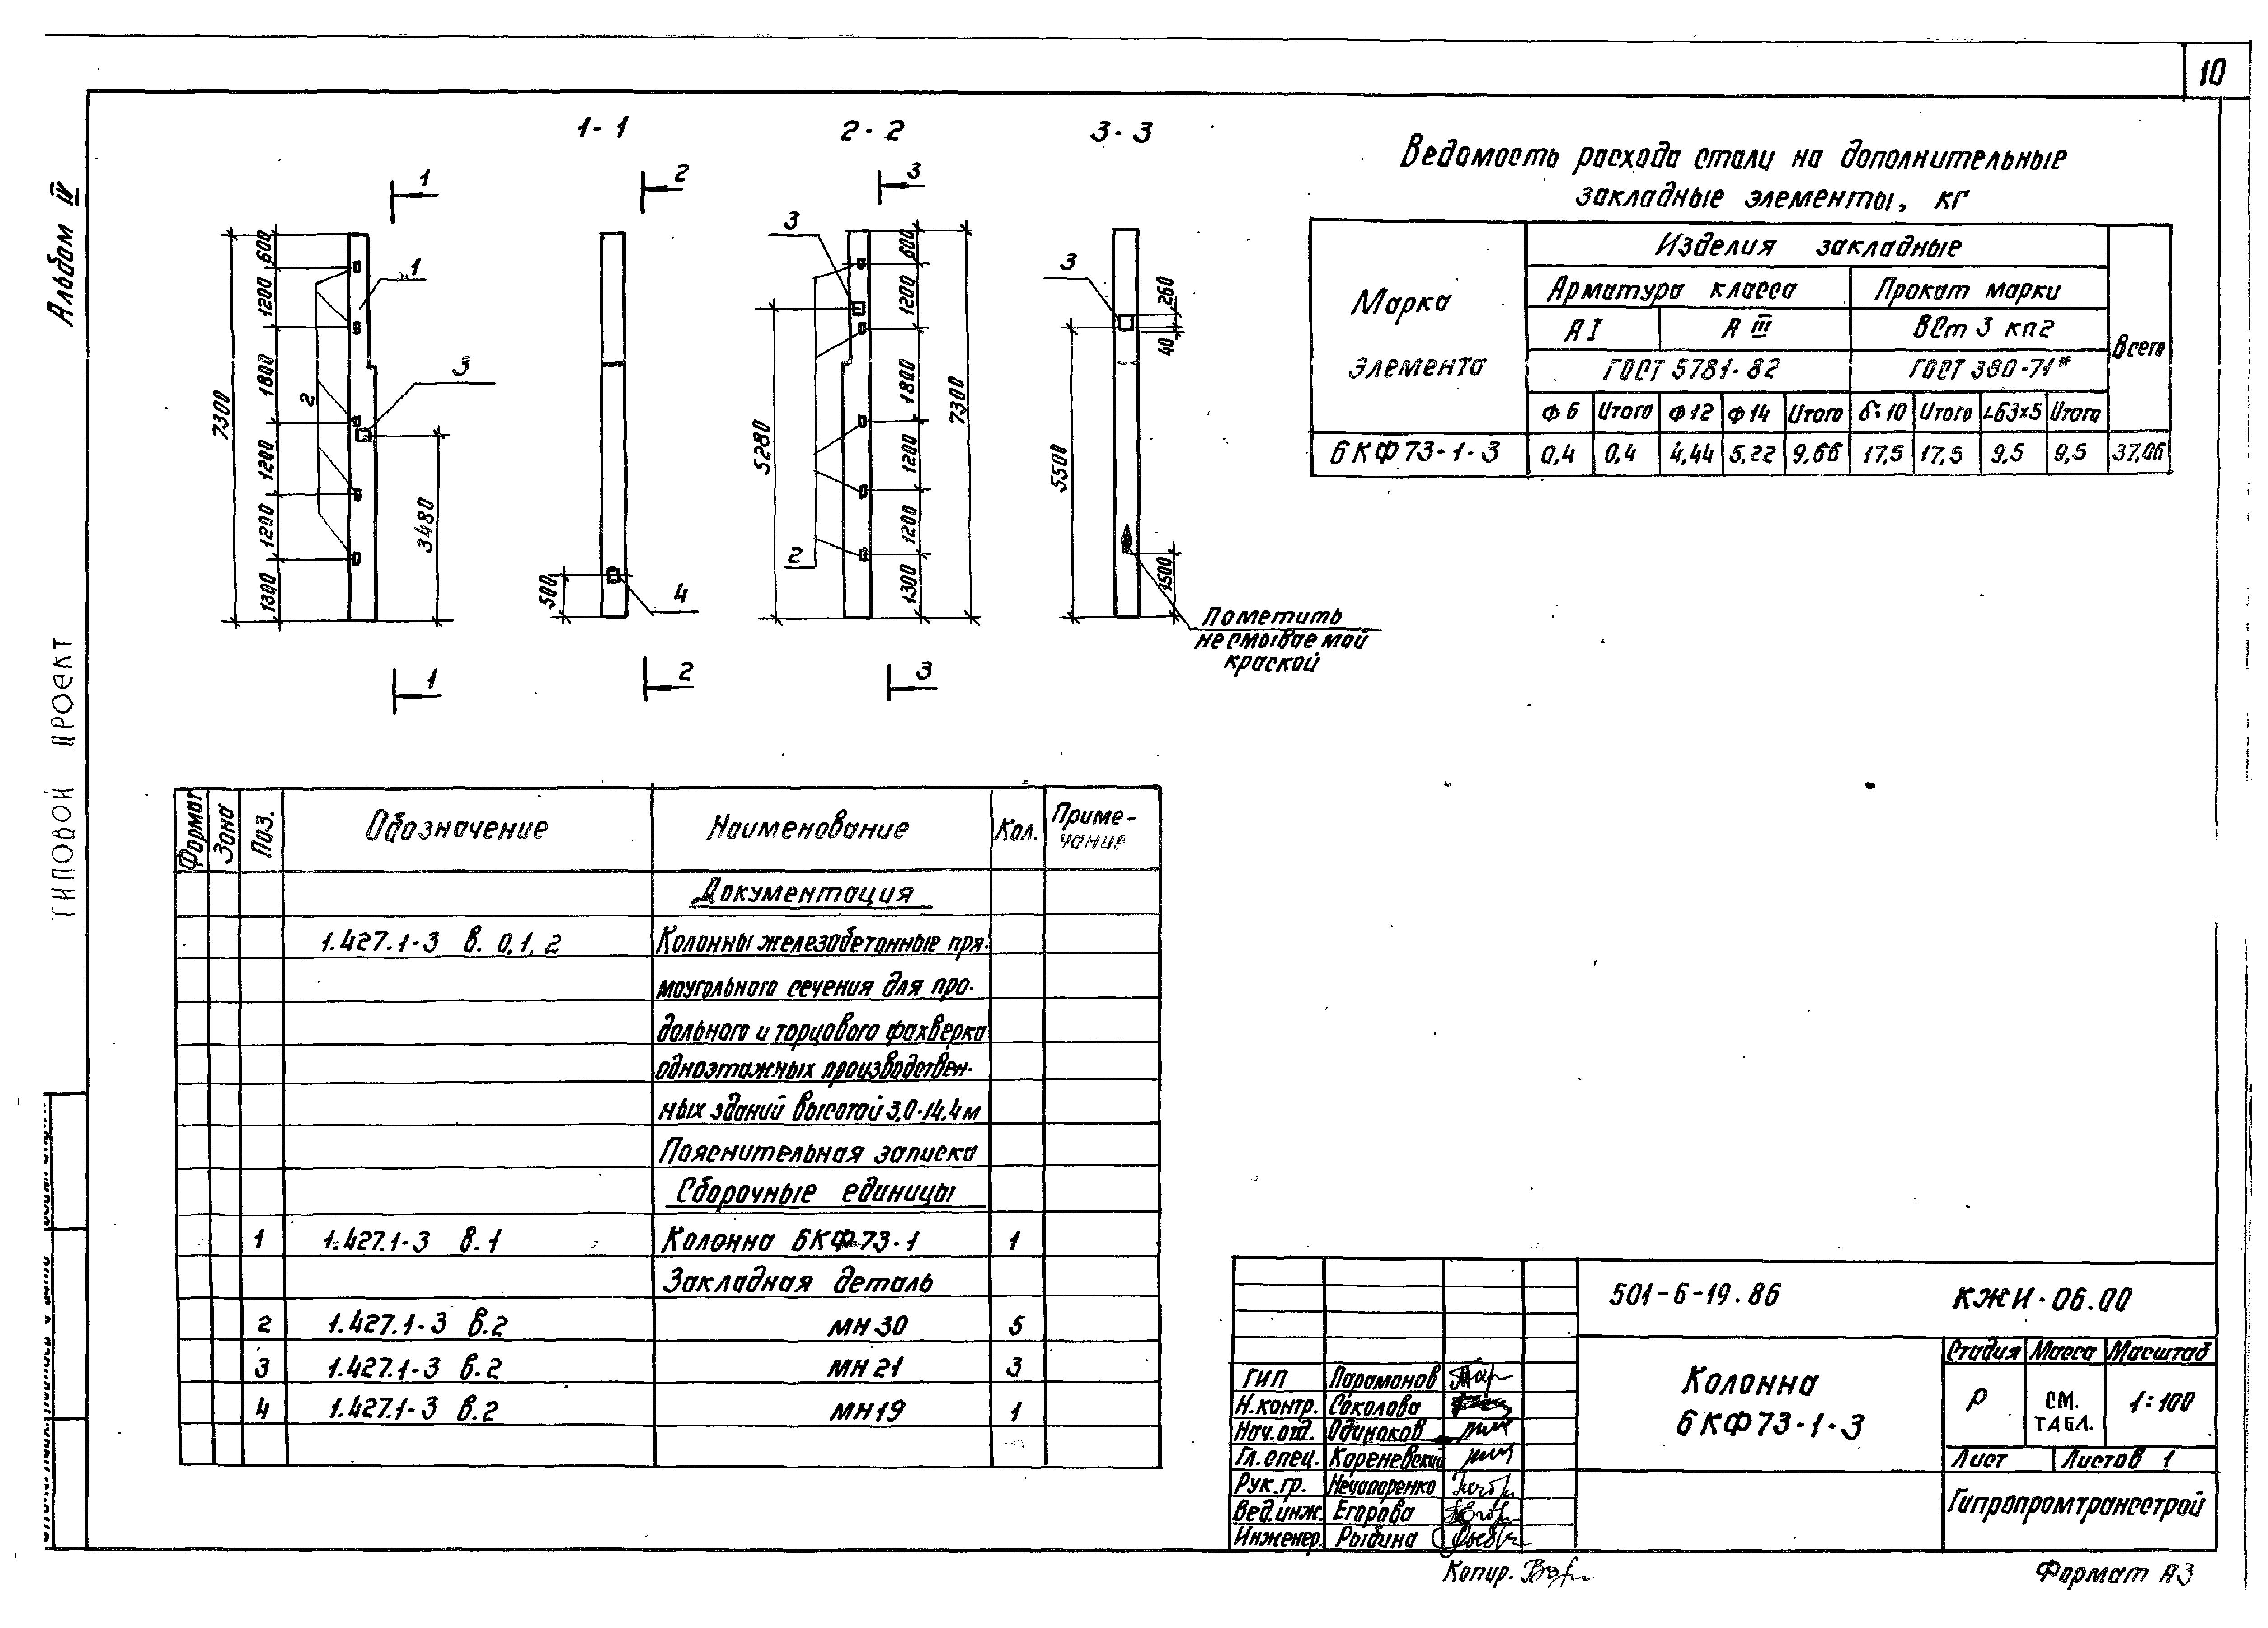 10
Альбом IV
ТИПОВОЙ ПРОЕКТ
1-1
2-2
3-3
1
2
3
7300
600
1200
1800
1200
1200
1300
2
1
3
3480
1
500
4
2
3
5280
2
600
1200
1800
1200
1200
1300
7300
3
3
260
40
5500
1500
Пометить
несмываемой
краской
Ведомость расхода стали на дополнительные
закладные элементы, кг
Марка элемента
Изделия закладные
Всего
Арматура класса
Прокат марки
А I
А III
ВСт 3 кп2
ГОСТ 5781-82
ГОСТ 380-71*
Ф6 Итого Ф12 Ф14 Итого δ=10 Итого L63×5 Итого
6КФ73-1-3 0,4 0,4 4,44 5,22 9,66 17,5 17,5 9,5 9,5 37,06
Формат Зона Поз. Обозначение Наименование Кол. Приме-
чание
Документация
1.427.1-3 в. 0,1,2 Колонны железобетонные пря-
моугольного сечения для про-
дольного и торцового фахверка
одноэтажных производствен-
ных зданий высотой 3,0-14,4м
Пояснительная записка
Сборочные единицы
1 1.427.1-3 в.1 Колонна 6КФ73-1 1
Закладная деталь
2 1.427.1-3 в.2 МН30 5
3 1.427.1-3 в.2 МН21 3
4 1.427.1-3 в.2 МН19 1
501-6-19.86 КЖИ-06.00
Колонна
6КФ73-1-3
Стадия Масса Масштаб
Р СМ. ТАБЛ. 1:100
Лист Листов 1
Гипропромтрансстрой
ГИП Парамонов
Н.контр. Соколова
Нач.отд. Одиноков
Гл.спец. Кореневский
Рук.гр. Нечипоренко
Вед.инж. Егорова
Инженер. Рыбина
Копир.
Формат А3